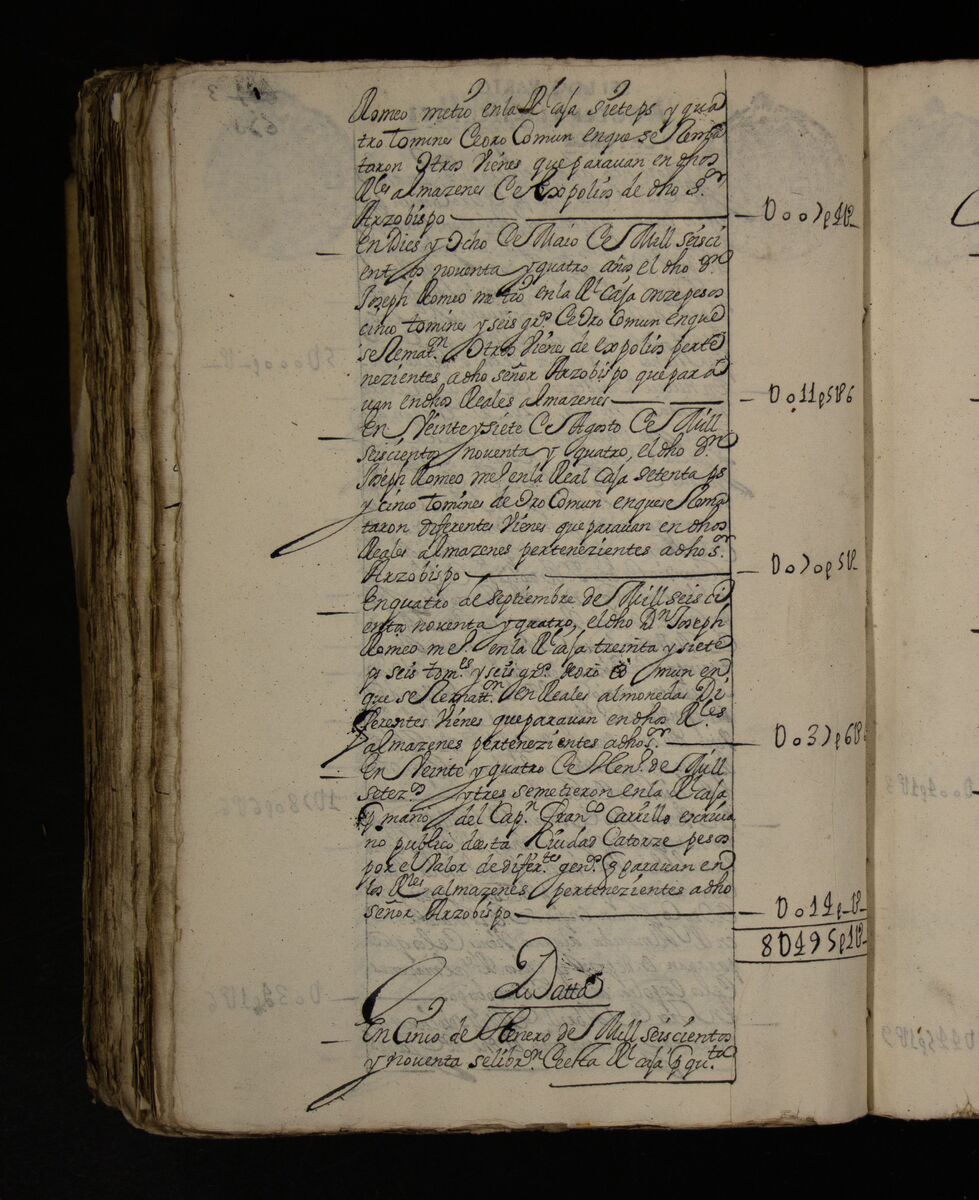 Romeo metio en la Rl caja siete ps y qua
tro tomines de oro Comun en que se Rema
taron otros Vienes que paravan en dhos
Rles almazenes de Expolios de dho Sr
Arzobispo — U007p4tts
En Dies y Ocho de Maio de Mill seisci
entos noventa y quatro años el dho Dn
Joseph Romeo metio en la Rl Caja onze pesos
cinco tomines y seis grs de Oro Comun en que
se Rematon Otros Vienes de expolios perte
nezientes a dho señor Arzobispo que para
uan en dhos Reales almazenes — U011p5tt6
En Veinte y siete de Agosto de Mill
seiscientos noventa y quatro, el dho Dn
Joseph Romeo me° en la Real Caja setenta ps
y cinco tomines de Oro Comun en que se Rema
taron diferentes Vienes que paravan en dhos
Reales almazenes pertenezientes a dho Sr
Arzobispo — U070p5tts
En quatro de Septiembre de Mill seisci
entos noventa y quatro, el dho Dn Joseph
Romeo me° en la Rl caja treinta y siete
ps seis tomes y seis grs de oro co mun en
que se Rematton en Reales almonedas Di
ferentes Vienes que paravan en dhos Rles
almazenes pertenezientes a dho Sr — U037p6tt6
En Veinte y quatro de Hen° de Mill
setezs y tres se metieron en la Rl caja
p mano del Capn Franco Carrillo escriva
no publico desta Ciudad Catorze pesos
por el Valor de difertes gens q paravan en
los Rles almazenes pertenezientes a dho
señor Arzobispo — U014p tts
8U495p1tts
Datta
En Cinco de Henero de Mill seiscientos
y noventa se libron desta Rl caja p quta